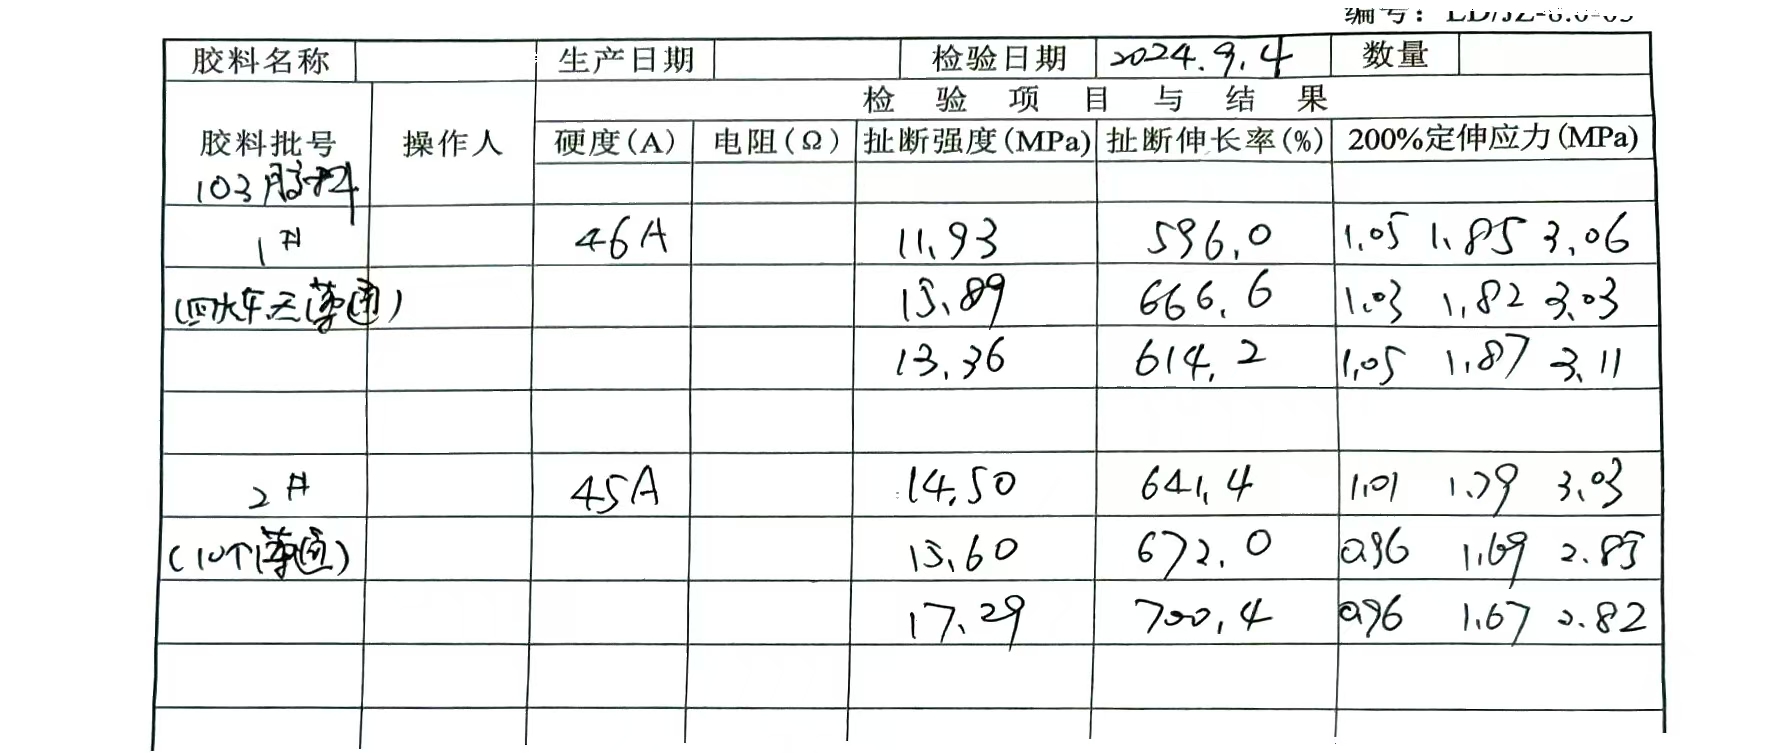 编号：LD/JZ-8.0-05
胶料名称 生产日期 检验日期 2024.9.4 数量
检验项目与结果
胶料批号 操作人 硬度(A) 电阻(Ω) 扯断强度(MPa) 扯断伸长率(%) 200%定伸应力(MPa)
103胶料
1# 46A 11.93 596.0 1.05 1.85 3.06
15.89 666.6 1.03 1.82 3.03
13.36 614.2 1.05 1.87 3.11
2# 45A 14.50 641.4 1.01 1.79 3.03
(10个薄通) 15.60 672.0 0.96 1.69 2.85
17.29 700.4 0.96 1.67 2.82